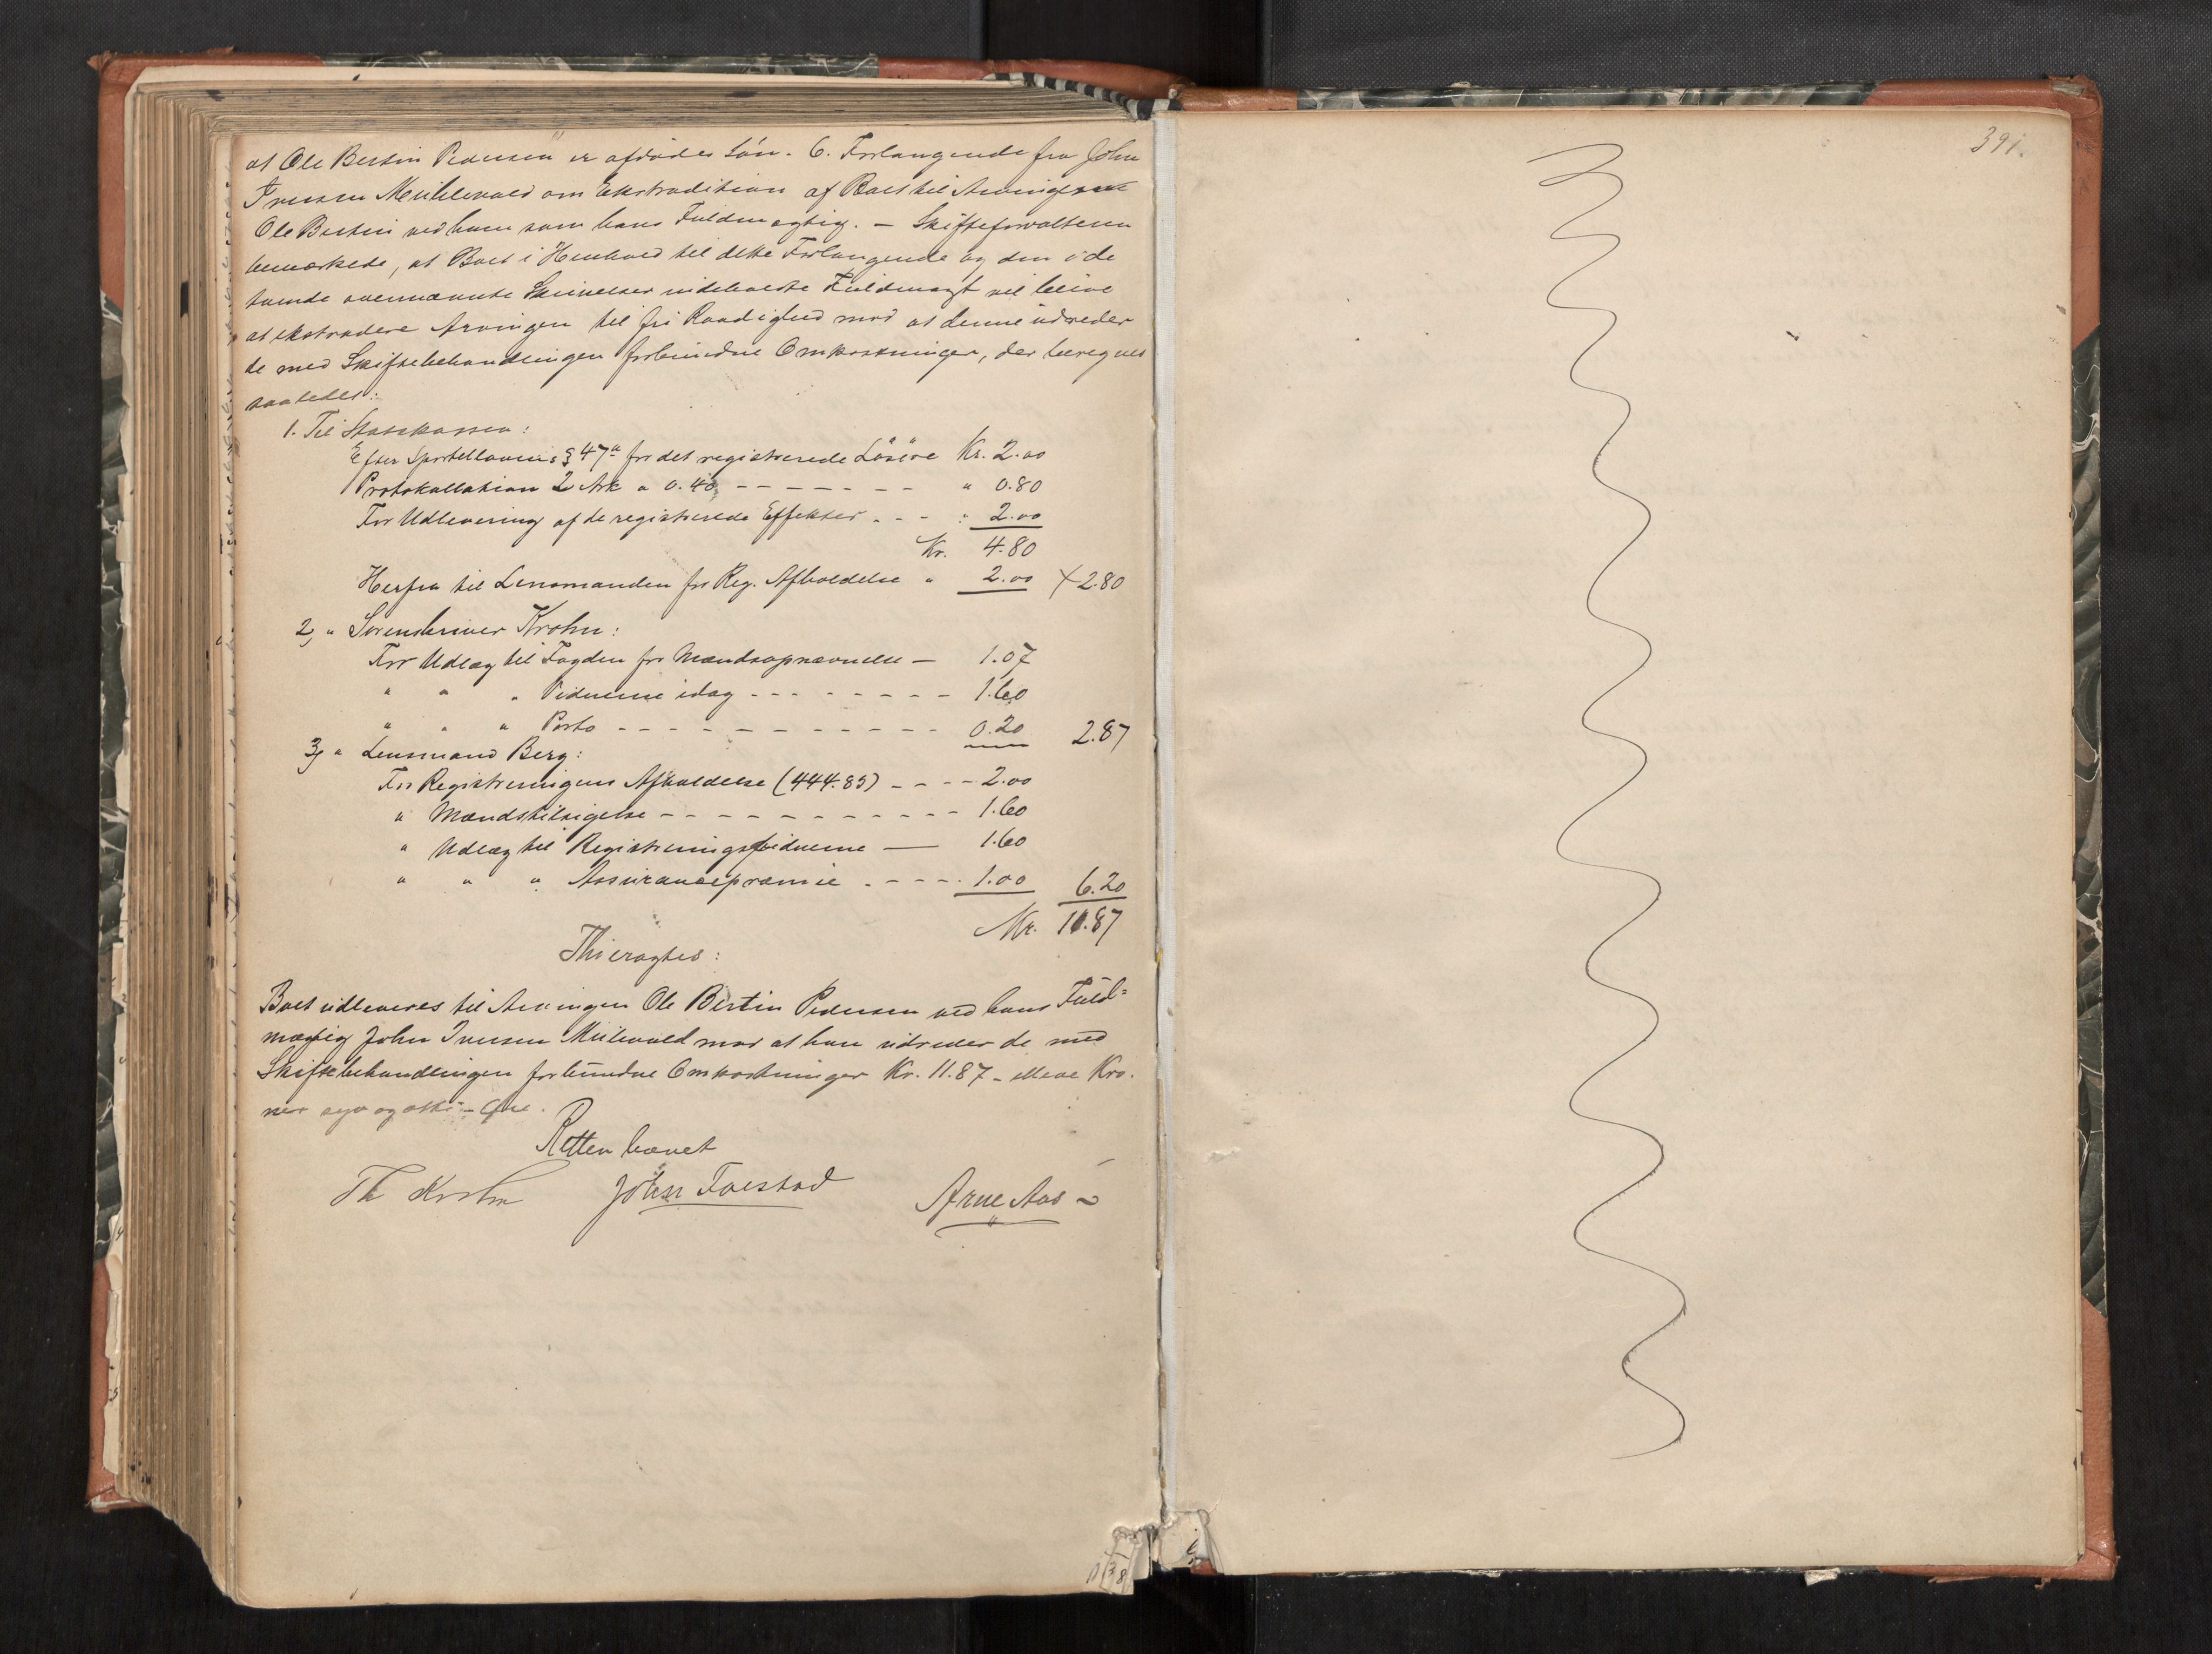 391.
at Ole Bertin Pedersen er afdödes Sön. 6. Forlangende fra John
Iversen Meulevold om Ekstradition af Boet til Arvingen
Ole Bertin ved ham som hans Fuldmægtig. — Skifteforvalteren
bemærkede, at Boet i Henhold til dette Forlangende og den i de
tvende ovennævnte Skrivelser indeholdte Fuldmagt vil blive
at ekstradere Arvingen til fri Raadighed mod at denne udreder
de med Skiftebehandlingen forbundne Omkostninger, der beregnes
saaledes:
1. Til Statskassen:
Efter Sportellovens § 47a for det registrerede Lösöre Kr. 2.00
Protokollation 2 Ark a 0.40 - - - - - - - " 0.80
For Udlevering af de registrerede Effekter . - - " 2.00
Kr. 4.80
Herfra til Lensmanden for Reg. Afholdelse " 2.00 2.80
2, " Sorenskriver Krohn:
For Udlæg til Fogden for Mændsopnævnelse — 1.07
" " " Vidnerne idag - - - - - - - - 1.60
" " " Porto - - - - - - - - - - - 0.20 2.87
3, " Lensmand Berg:
For Registreringens Afholdelse (444.85) - - - - 2.00
" Mændstilsigelse - - - - - - - - - - - 1.60
" Udlæg til Registreringsvidnerne — 1.60
" " " Assurancepræmie . - - - . 1.00 6.20
Kr. 11.87
Thi eragtes:
Boet udleveres til Arvingen Ole Bertin Pedersen ved hans Fuld=
mægtig John Iversen Mülevold mod at han udreder de med
Skiftebehandlingen forbundne Omkostninger Kr. 11.87 - elleve Kro-
ner syv og otti - Öre.
Retten hævet
Th Krohn John Foestad Arne Aas